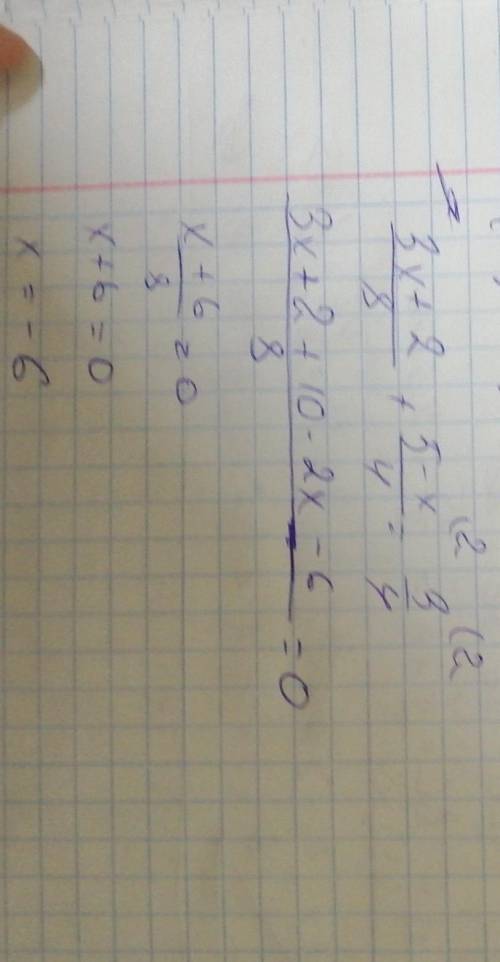 (3x+2)/8 + (5-x)/4 (2 = 3/4 (2
(3x+2+10-2x-6)/8 = 0
(x+6)/8 = 0
x+6=0
x=-6